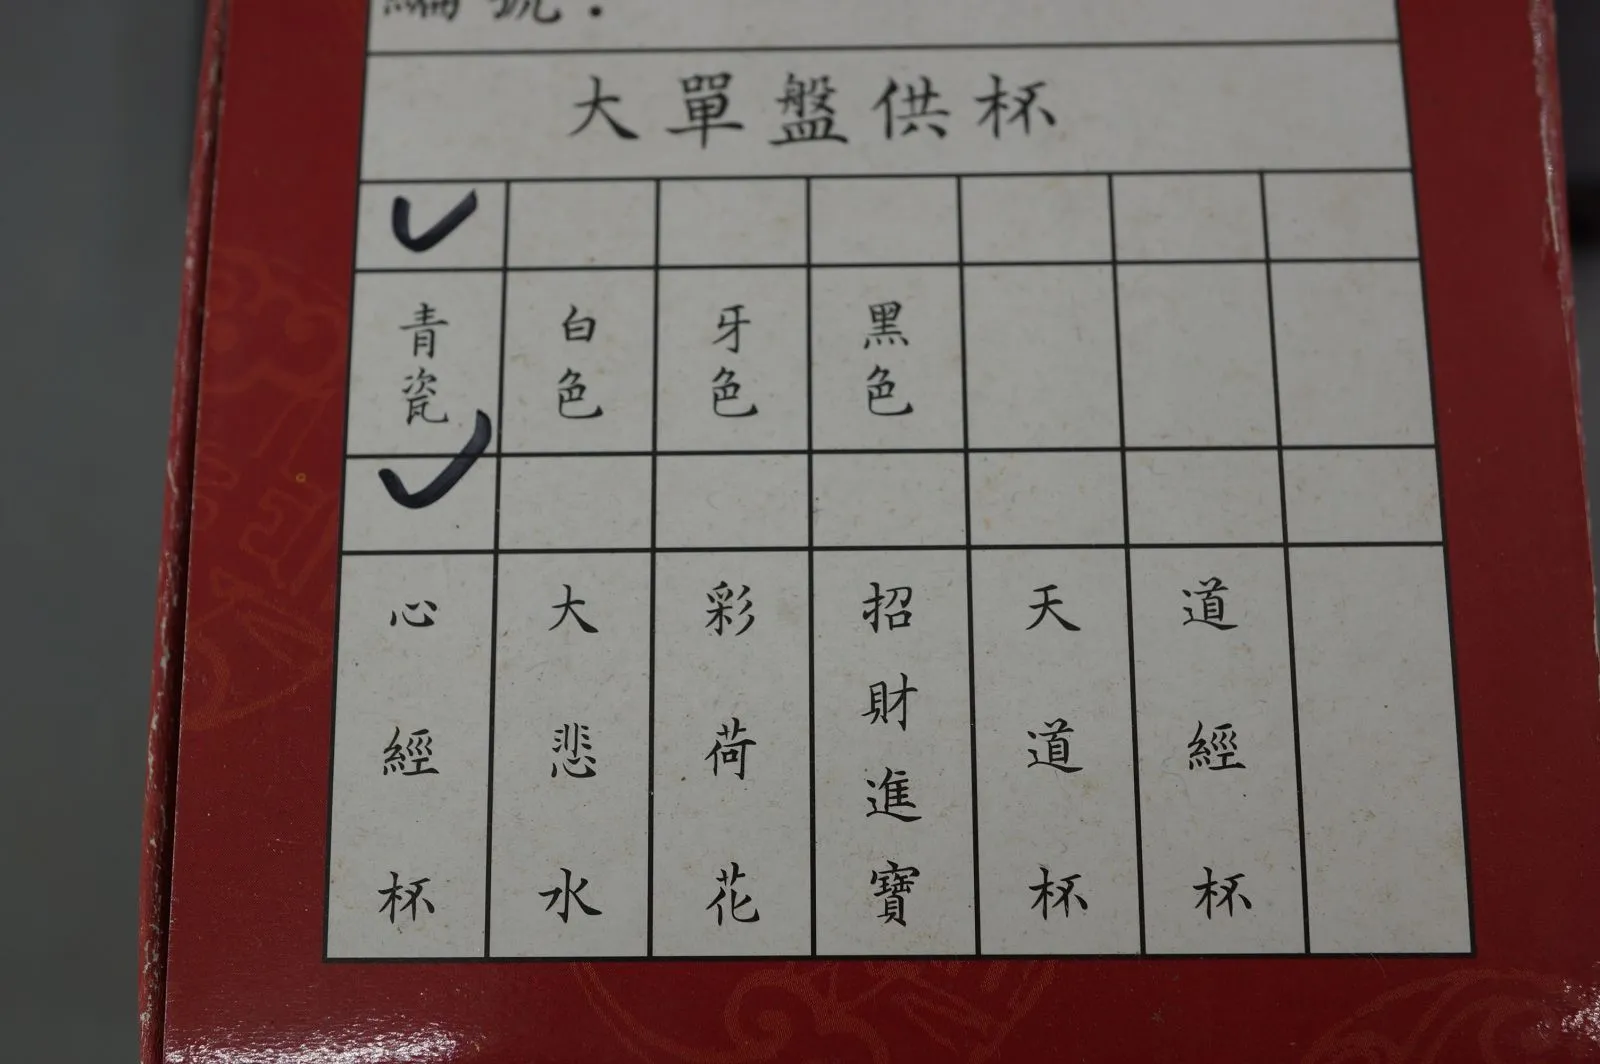 編號：
大單盤供杯
青瓷
白色
牙色
黑色
心經杯
大悲水
彩荷花
招財進寶
天道杯
道經杯